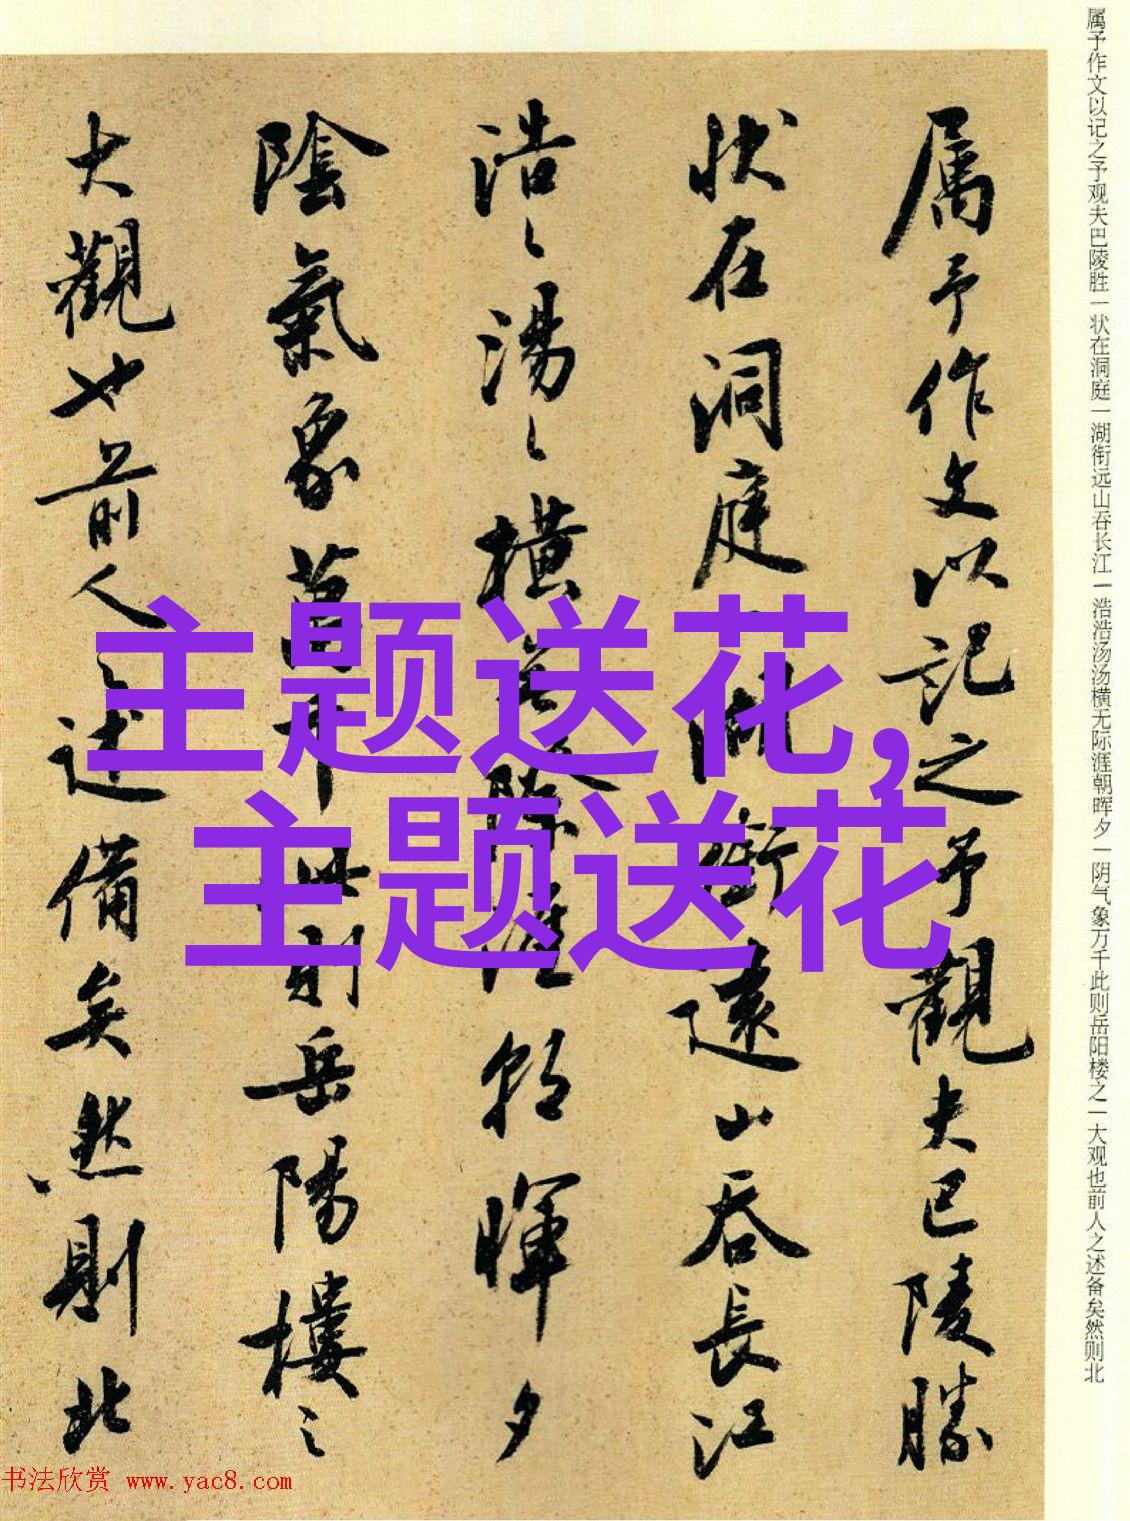 属予作文以记之予观夫巴陵胜一状在洞庭一湖衔远山吞长江一浩浩汤汤横无际涯朝晖夕一阴气象万千此则岳阳楼之一大观也前人之述备矣然则北
属予作文以記之予觀夫巴陵勝
状在洞庭一湖銜遠山吞長江
浩〻湯〻橫無際涯朝暉夕
陰氣象萬千此則岳陽樓之
大觀也前人之述備矣然則北
主题送花,
主题送花
书法欣赏 www.yac8.com